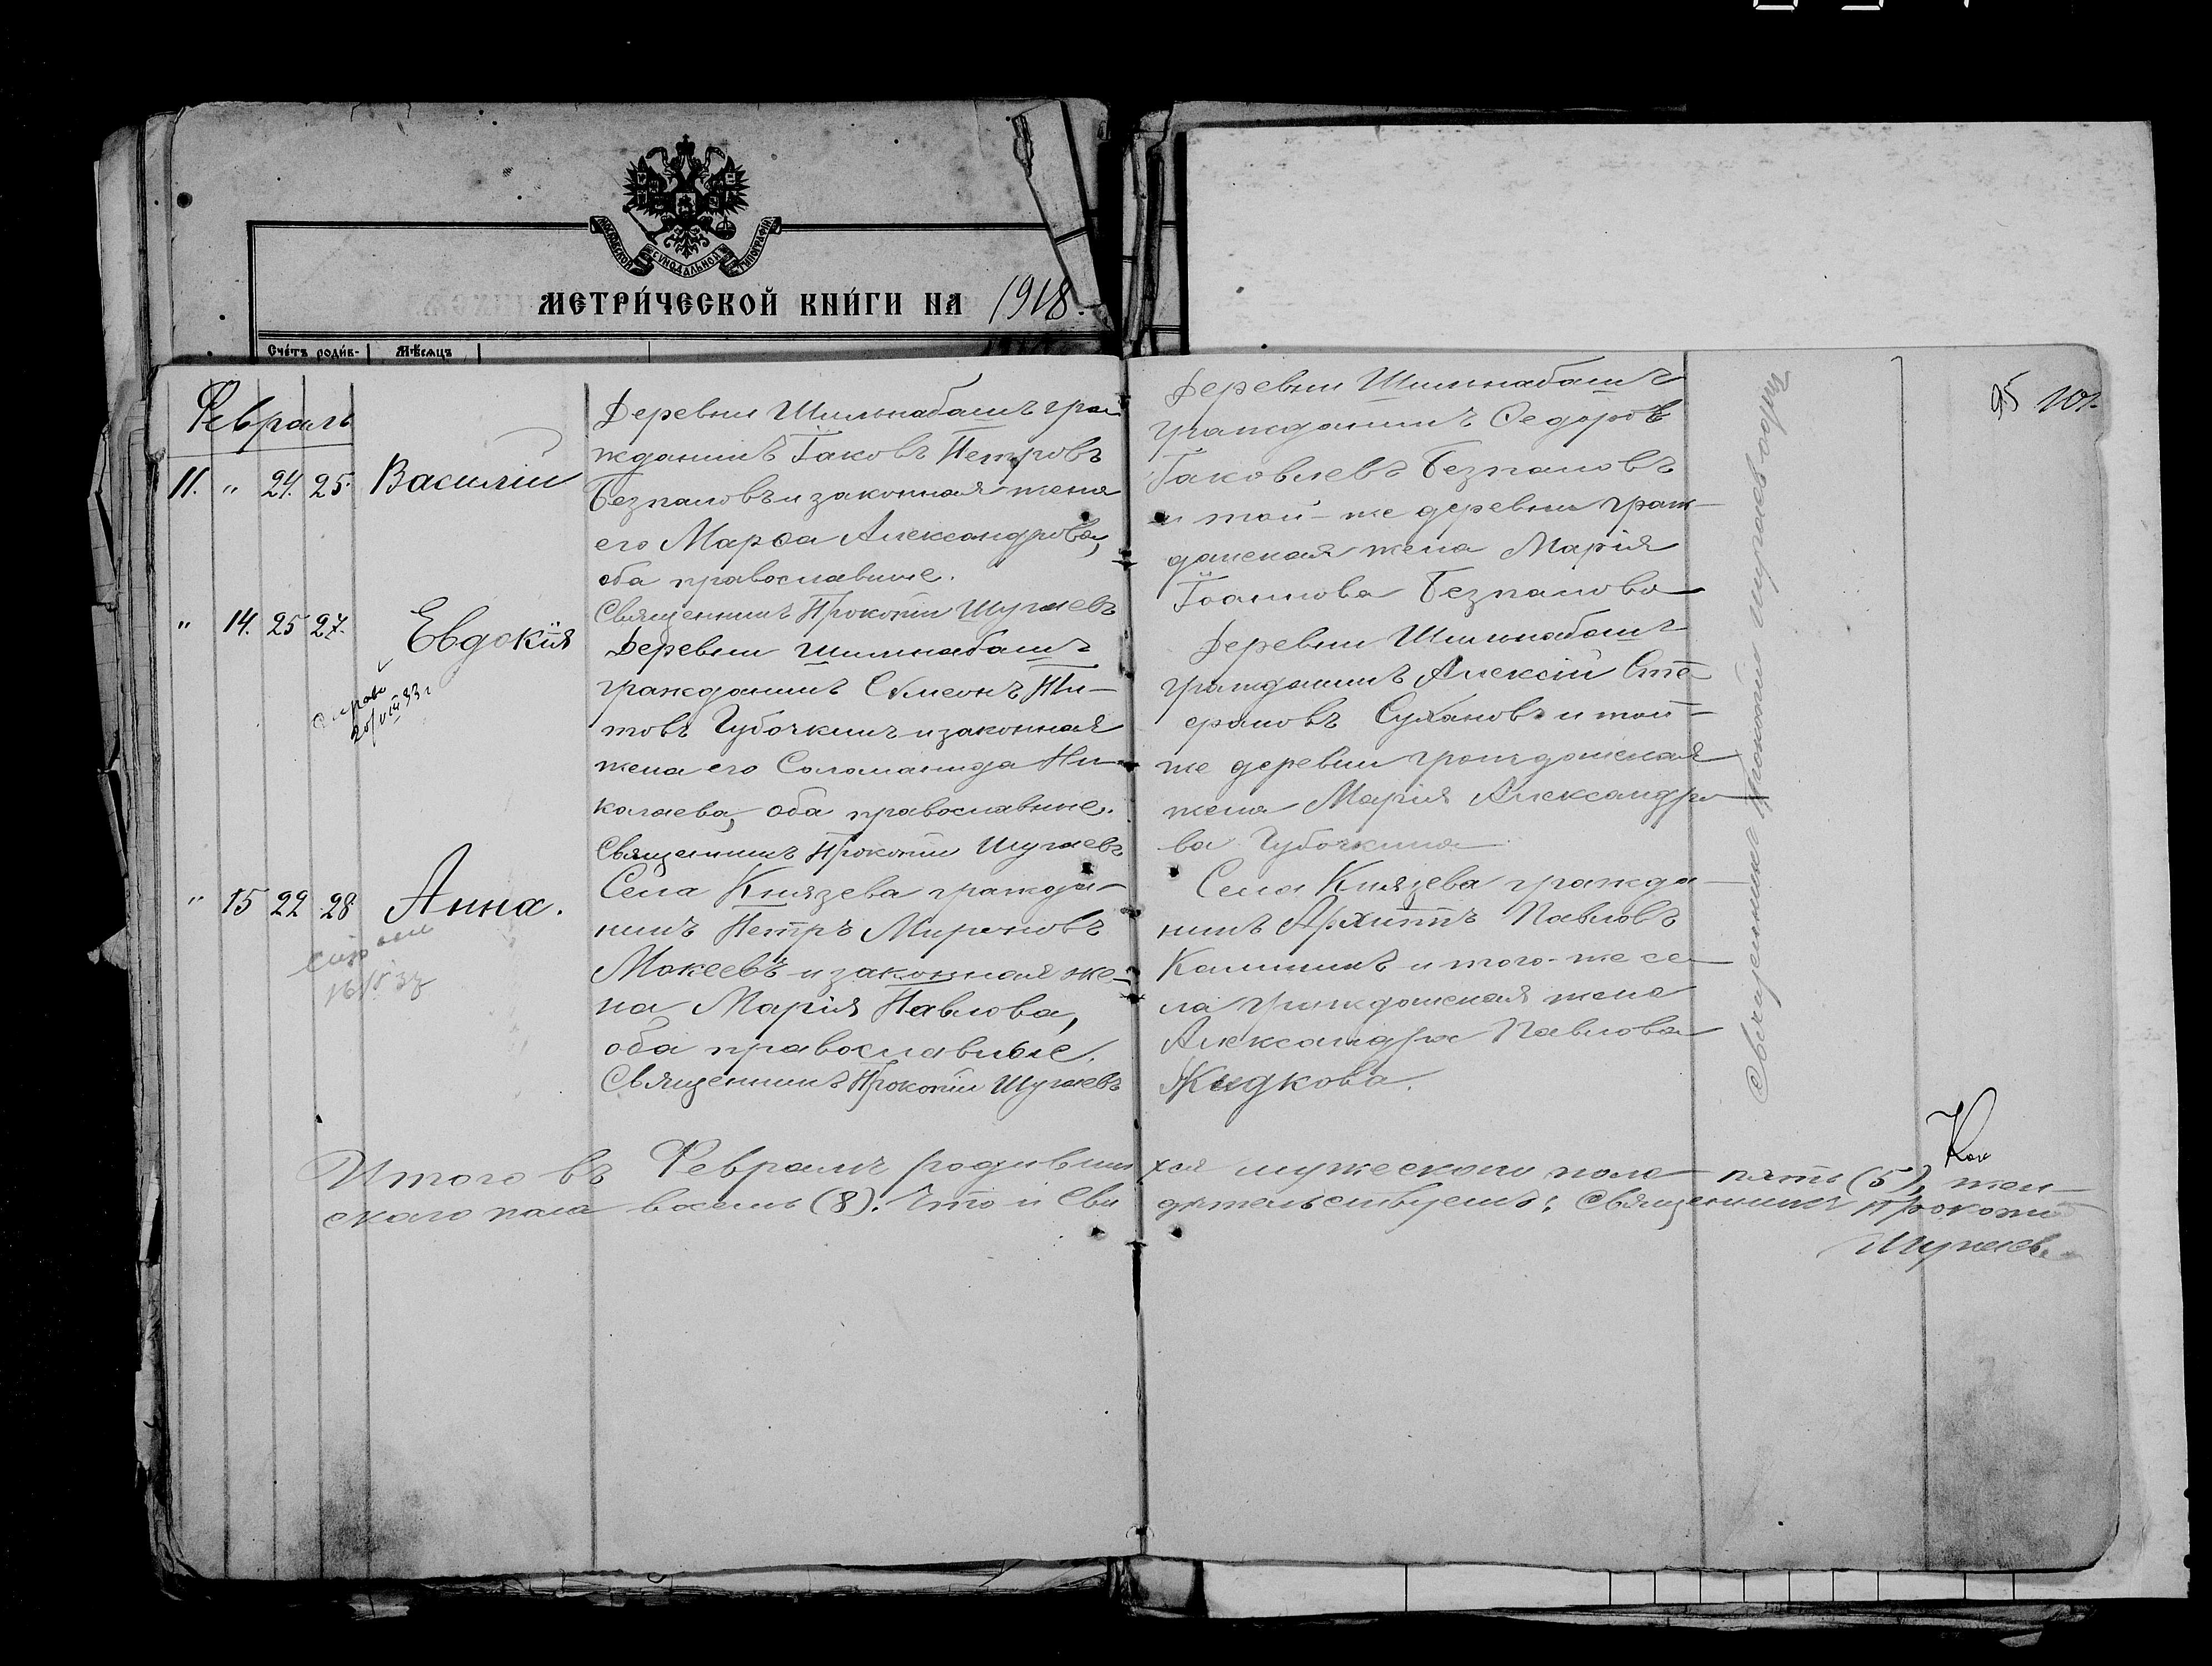 МОСКОВСКОЙ СѴНОДАЛЬНОЙ ТИПОГРАФІИ
МЕТРИ́ЧЕСКОЙ КНИ́ГИ НА 1918.
Сче́тъ роди́в-
Мѣ́сяцъ
95 101.
Февраль
11. " 24. 25. Василій
Деревни Шильнабашъ гра
жданинъ Іаковъ Петровъ
Безпаловъ и законная жена
его Марѳа Александрова,
оба православные.
Священникъ Прокопій Шугаевъ
Деревни Шильнабашъ
гражданинъ Ѳедоръ
Іаковлевъ Безпаловъ
и той-же деревни граж-
данская жена Марія
Іоаннова Безпалова
" 14. 25 27. Евдокія
20/VIII 33 г
Деревни Шильнабашъ
гражданинъ Сѵмеонъ Ти-
товъ Губочкинъ и законная
жена его Соломанида Ни-
колаева, оба православные.
Священникъ Прокопій Шугаевъ
Деревни Шильнабашъ
гражданинъ Алексій Сте-
фановъ Сухановъ и той-
же деревни гражданская
жена Марія Александро-
ва Губочкина
" 15 22 28 Анна.
Села Князева гражда-
нинъ Петръ Мироновъ
Мокеевъ и законная же-
на Марія Павлова,
оба православные.
Священникъ Прокопій Шугаевъ
Села Князева гражда-
нинъ Архиппъ Павловъ
Калининъ и того-же се-
ла гражданская жена
Александра Павлова
Жидкова.
Священникъ Прокопій Шугаевъ
Итого въ Февралѣ родивших
хся мужескаго пола пять (5), жен-
скаго пола восемь (8). Что и сви
дѣтельствуемъ: Священникъ Прокопій
Шугаевъ